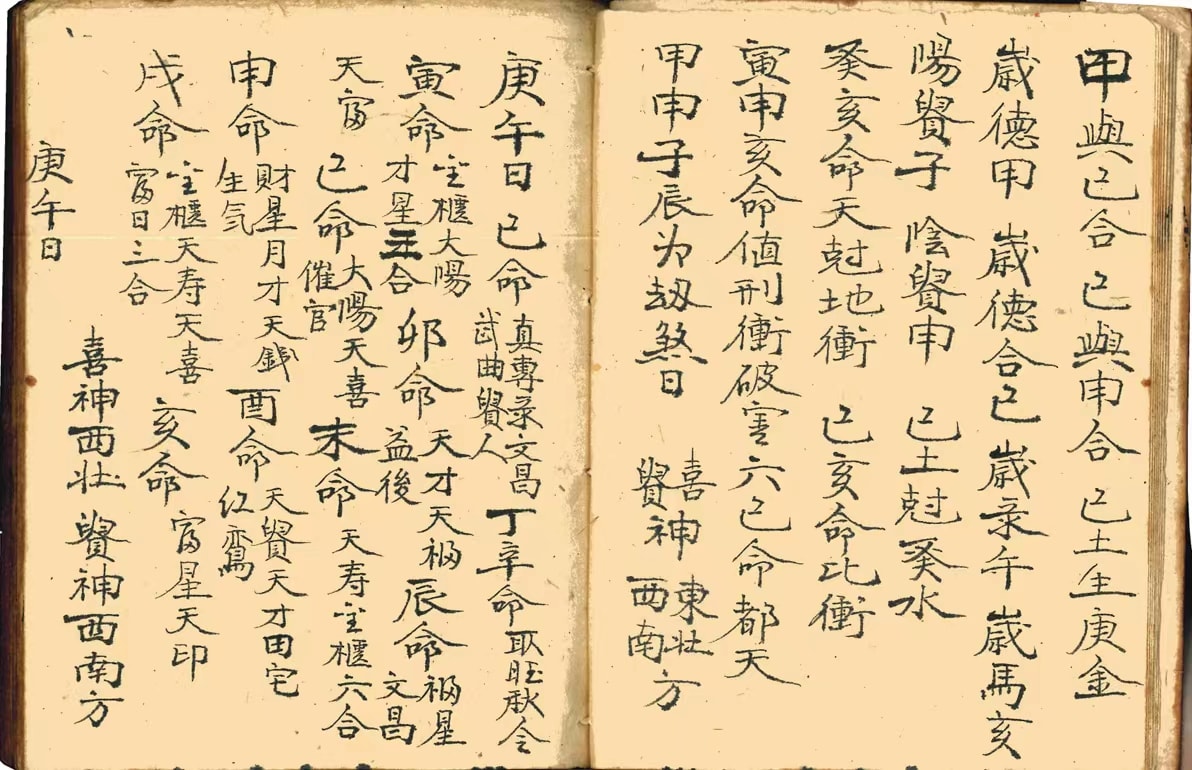 甲與己合 己與甲合 己土生庚金
歲德甲 歲德合己 歲录午 歲馬亥
陽貴子 陰貴申 己土尅癸水
癸亥命天尅地衝 己亥命比衝
寅申亥命值刑衝破害六己命都天
甲申子辰为劫煞日 喜貴神東北西南方
庚午日 巳命 真專录文昌武曲貴人 丁辛命取旺秋令
寅命 金櫃大陽才星三合 卯命 天才天福益後 辰命 福星文昌
天富 巳命 大陽天喜催官 未命 天寿金櫃六合
申命 財星月才天錢生气 酉命 天貴天才田宅红鸞
戌命 金櫃天寿天喜富日三合 亥命 富星天印
喜神西北 貴神西南方
庚午日